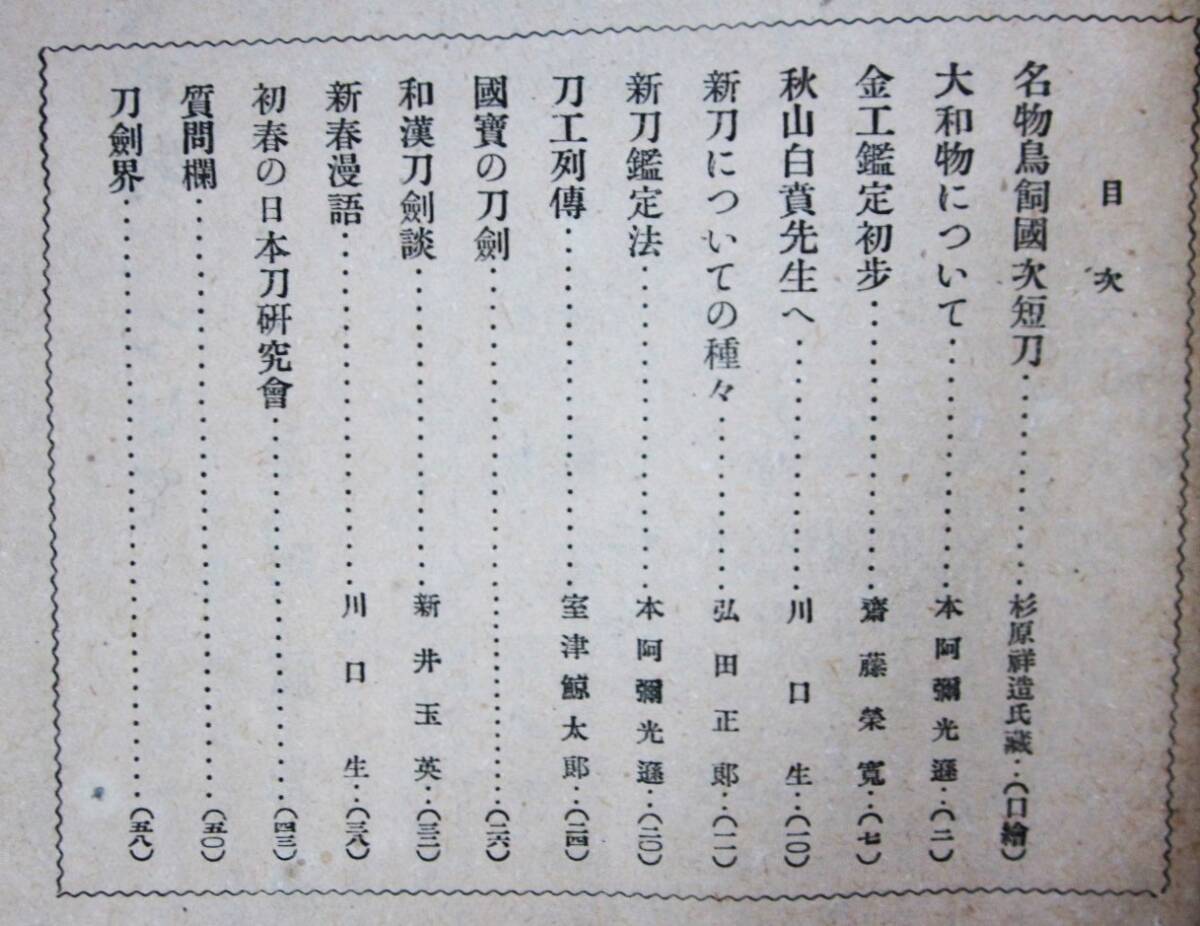 目次
名物鳥飼國次短刀‥‥‥‥杉原祥造氏藏‥(口繪)
大和物について‥‥‥‥本阿彌光遜‥(二)
金工鑑定初步‥‥‥‥齋藤榮寬‥(七)
秋山白賁先生へ‥‥‥‥川口生‥(一〇)
新刀についての種々‥‥‥‥弘田正郞‥(一一)
新刀鑑定法‥‥‥‥本阿彌光遜‥(二〇)
刀工列傳‥‥‥‥室津鯨太郞‥(二四)
國寶の刀劍‥‥‥‥(二六)
和漢刀劍談‥‥‥‥新井玉英‥(三二)
新春漫語‥‥‥‥川口生‥(三八)
初春の日本刀硏究會‥‥‥‥(四三)
質問欄‥‥‥‥(五〇)
刀劍界‥‥‥‥(五八)